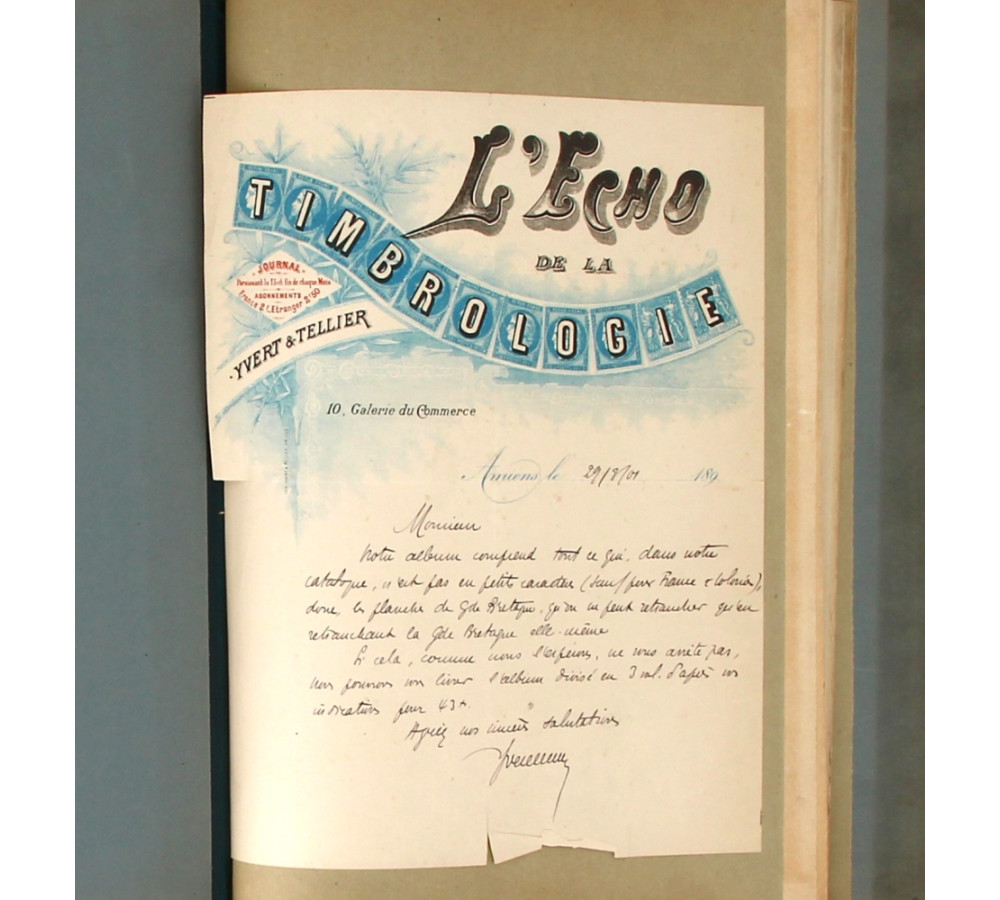 L'ECHO
DE LA
TIMBROLOGIE
JOURNAL
Paraissant le 15 et fin de chaque Mois
ABONNEMENTS
France 2f. Etranger 2f50
YVERT & TELLIER
10, Galerie du Commerce
Amiens le 29/8/01 189
Monsieur
Notre album comprend tout ce qui, dans notre
catalogue, n'est pas en petits caractères (sauf pour France & Colonies),
donc, les planches de Gde Bretagne, qu'on ne peut retrancher qu'en
retranchant la Gde Bretagne elle-même
Si cela, comme nous l'espérons, ne vous arrête pas,
nous pourrons vous livrer l'album divisé en 3 vol. d'après vos
indications pour 43
Agréez nos sincères salutations